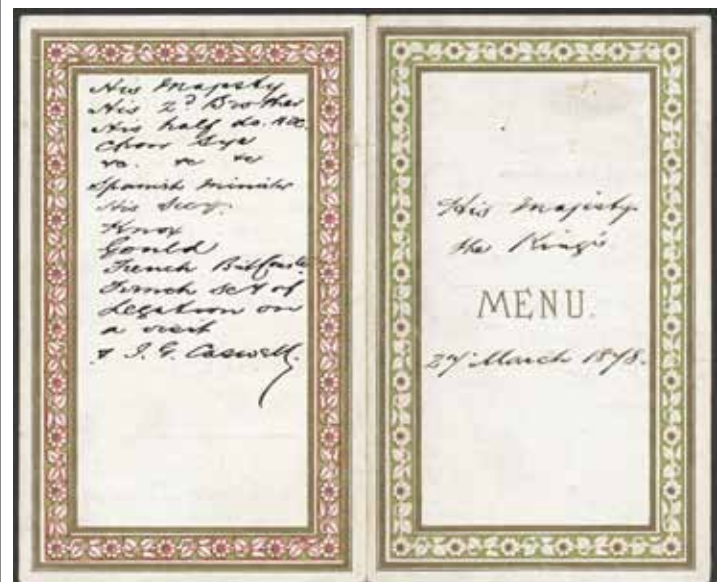 His Majesty
His 2d Brother
His half do.
Chow Sye
&c. &c &c
Spanish Minister
His Secy.
Knox
Gould
French
French Sec of
Legation on
a visit
& J. G. Caswell.
His Majesty
the King's
MENU.
27 March 1878.